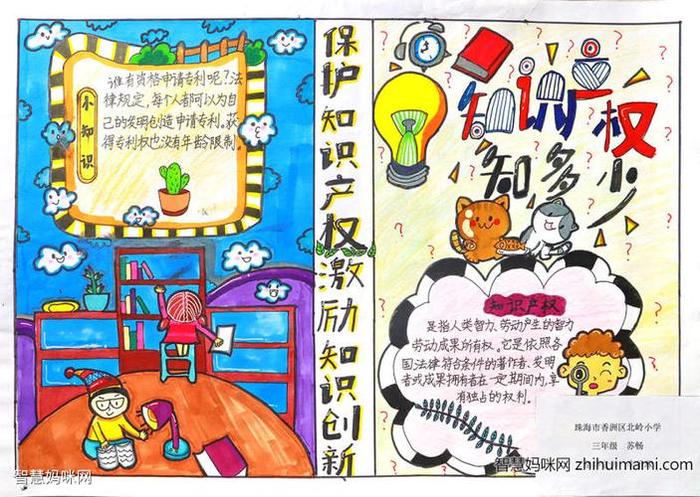 小知识
谁有资格申请专利呢?法
律规定,每个人都可以为自
己的发明创造申请专利。获
得专利权也没有年龄限制。
保护知识产权激励知识创新
知识产权
知多少
知识产权
是指人类智力、劳动产生的智力
劳动成果所有权。它是依照各
国法律符合条件的著作者、发明
者或成果拥有者在一定期间内,享
有独占的权利。
珠海市香洲区北岭小学
三年级 苏畅
智慧妈咪网
智慧妈咪网 zhihuimami.com